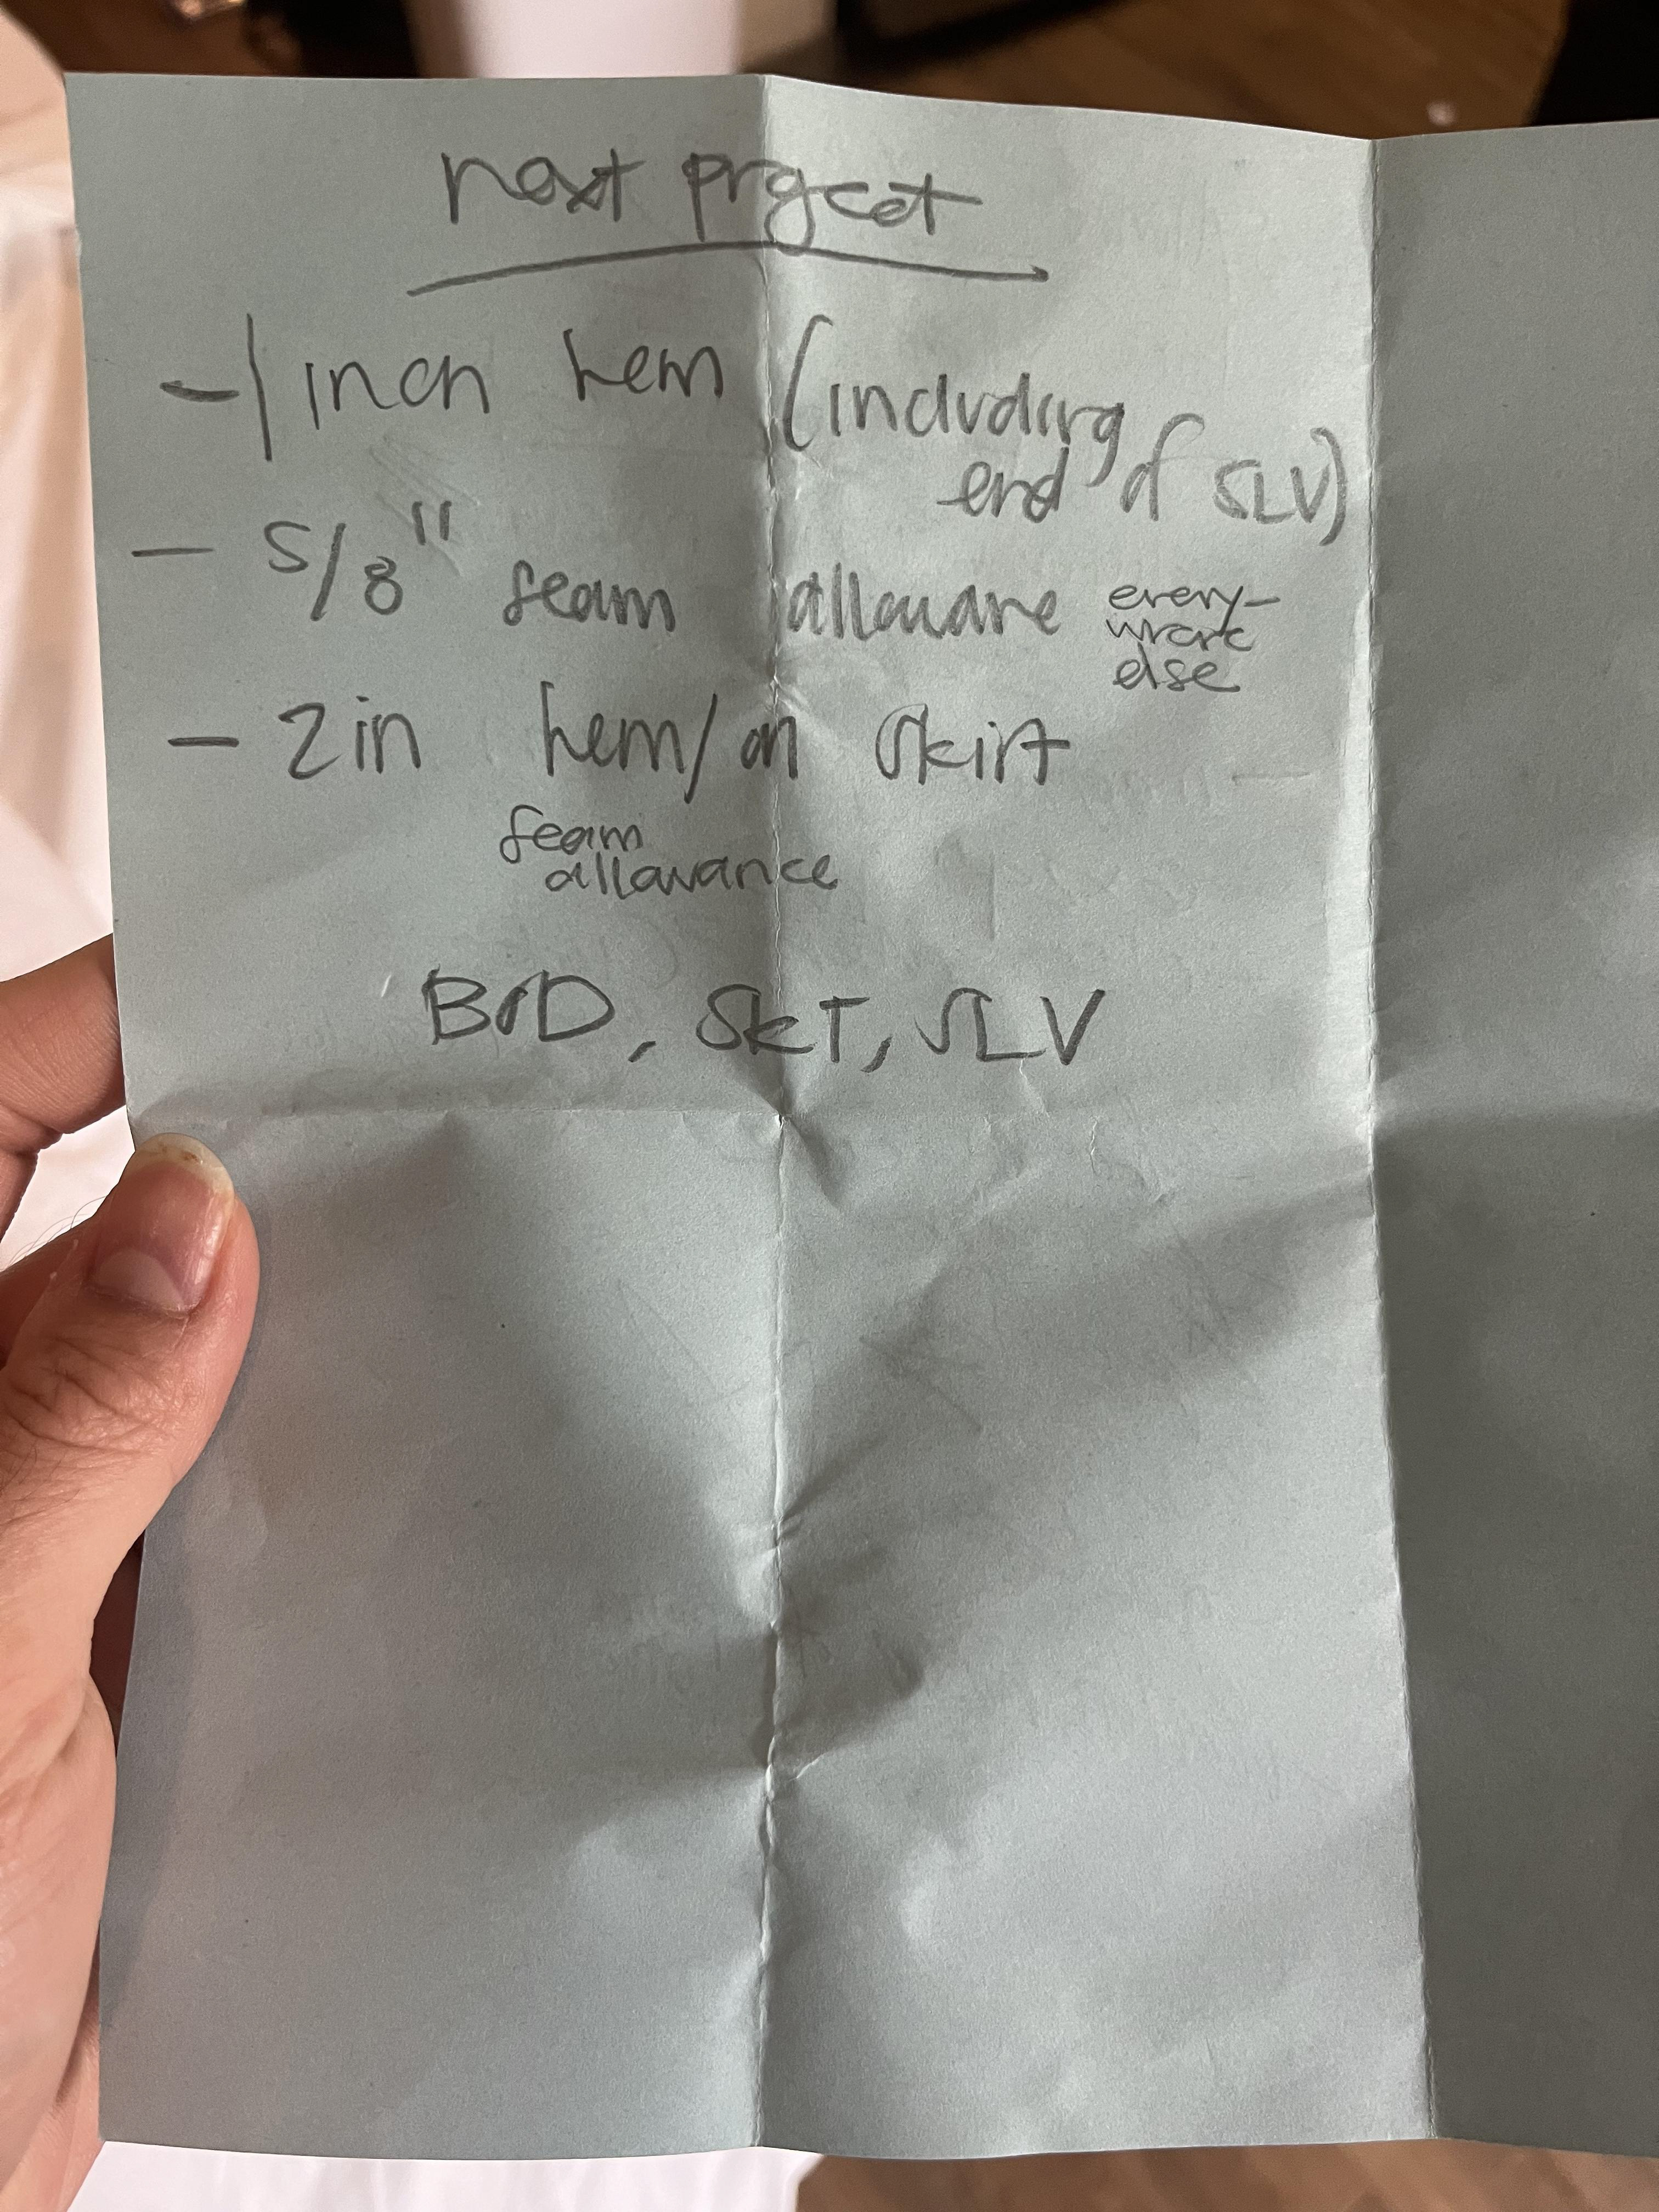 next project
- 1 inch hem (including
end of SLV)
- 5/8" seam allowance every-
where
else
- 2 in hem/ on skirt
seam
allowance
BOD, SKT, SLV